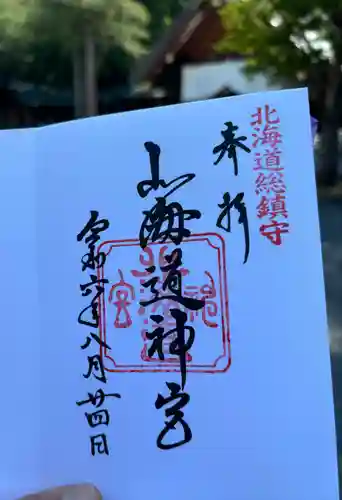 北海道総鎮守
奉拝
北海道神宮
令和六年八月廿四日